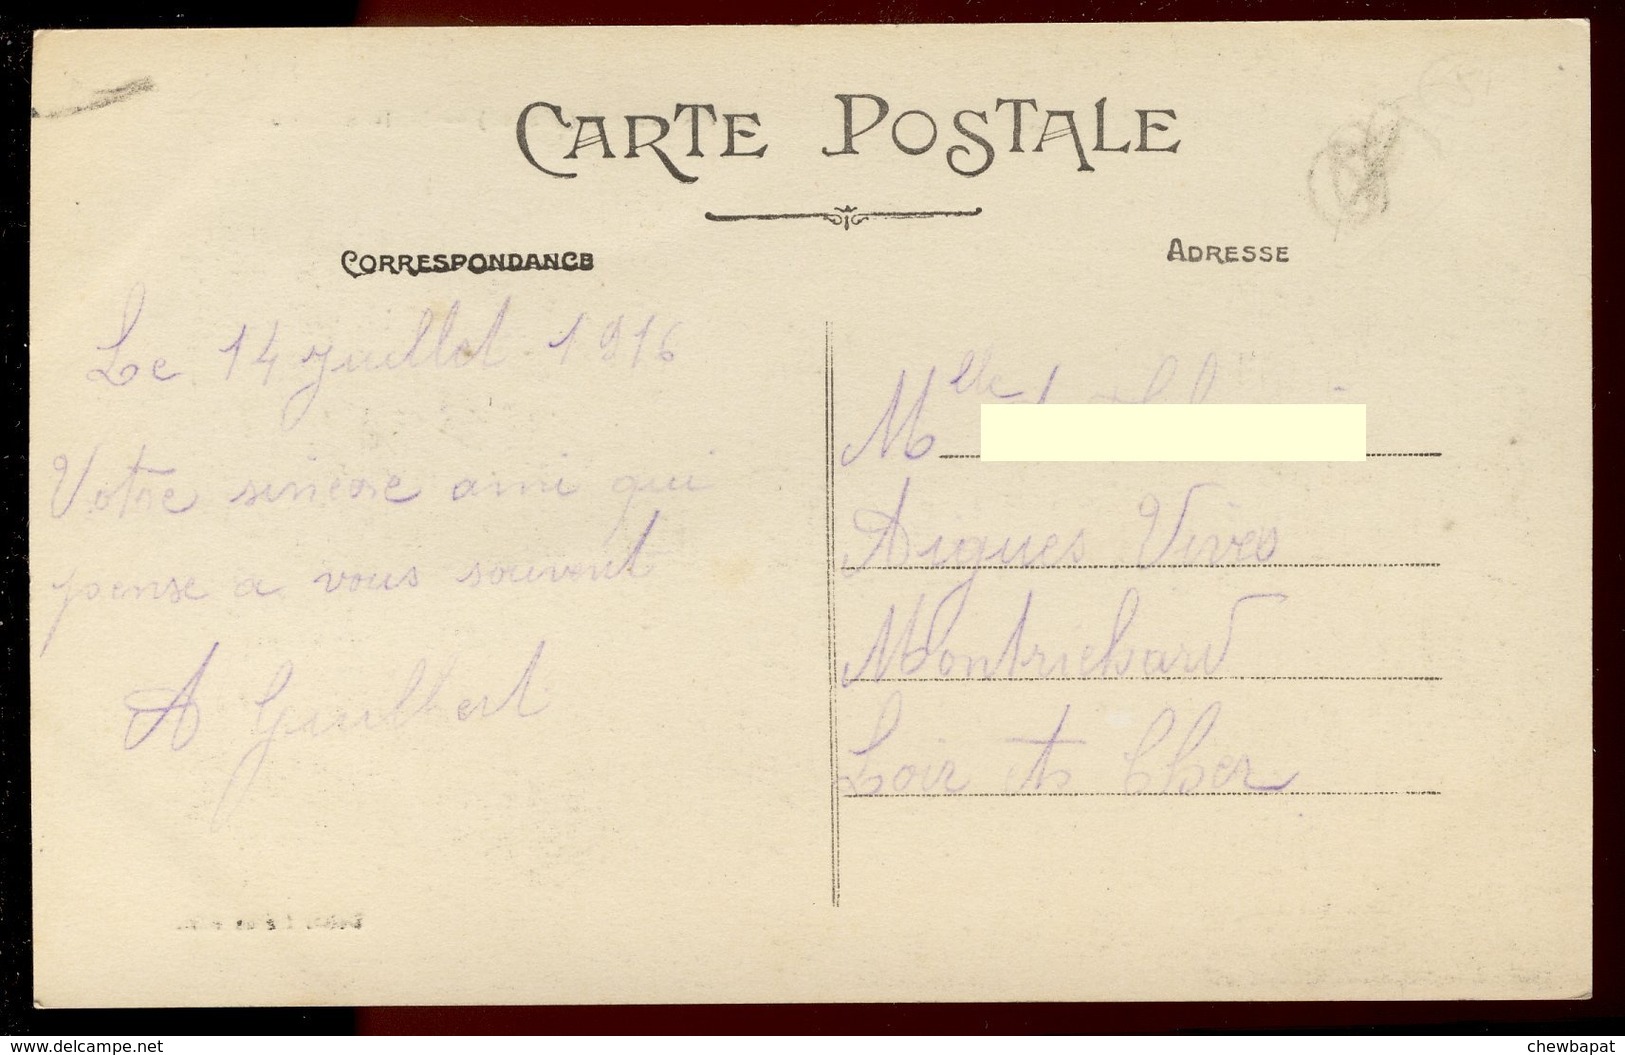 CARTE POSTALE
CORRESPONDANCE
ADRESSE
Le 14 juillet 1916
Votre sincère ami qui
pense a vous souvent
A Guilbert
Mlle
Aigues Vives
Montrichard
Loir et Cher
www.delcampe.net
chewbapat